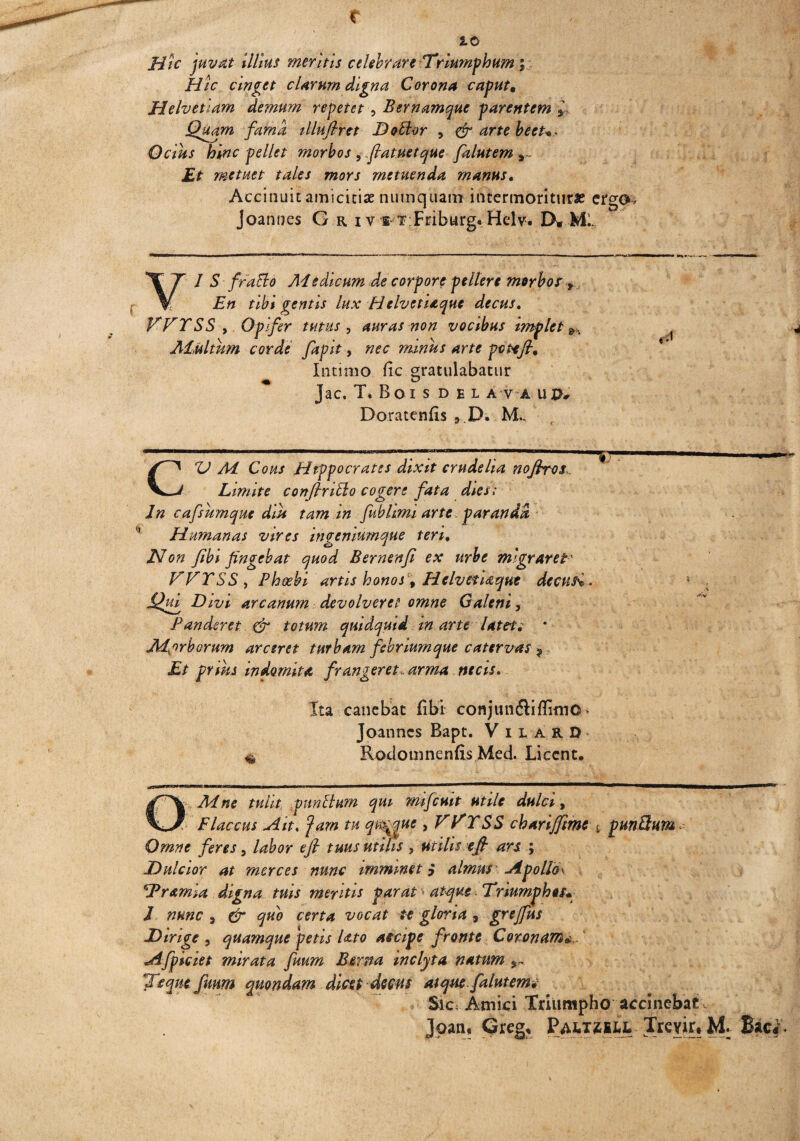 10
Hîc juvat illius meritis celebrare Triumphum ;
Hîc cinget clarum digna Corona caput.
Helvetiam demum repetet , Bernamque parentem ,
Quam famâ illuſtret Doctor , & arte beet.
Ocius hinc pellet morbos , ſtatuetque ſalutem ,
Et metuet tales mors metuenda manus.
Accinuit amicitiæ numquam intermorituræ ergo,
Joannes GRIVET Friburg. Helv. D. M.
VIS fracto Medicum de corpore pellere morbos ,
En tibi gentis lux Helvetiæque decus.
VVYSS , Opifer tutus , auras non vocibus implet ,
Multùm corde ſapit , nec minùs arte poteſt.
Intimo ſic gratulabatur
Jac. T. BOIS DELAVAUD,
Doratenſis , D. M.
CUM Cous Hippocrates dixit crudelia noſtros
Limite conſtricto cogere fata dies :
In caſsúmque diù tam in ſublimi arte parandâ
Humanas vires ingeniumque teri.
Non ſibi fingebat quod Bernenſi ex urbe migraret
VVYSS , Phœbi artis honos , Helvetiæque decus.
Qui Divi arcanum devolveret omne Galeni ,
Panderet & totum quidquid in arte latet.
Morborum arceret turbam febriumque catervas ,
Et priùs indomita frangeret arma necis.
Ita canebat ſibi conjunctiſſimo
Joannes Bapt. VILARD
Rodomnenſis Med. Licent.
OMne tulit punctum qui miſcuit utile dulci ,
Flaccus Ait. Jam tu quoque , VVYSS chariſſime , punctum
Omne feres , labor eſt tuus utilis , utilis eſt ars ;
Dulcior at merces nunc imminet ; almus Apollo
Præmia digna tuis meritis parat atque Triumphos.
I nunc , & quò certa vocat te gloria , greſſus
Dirige , quamque petis læto accipe fronte Coronam.
Aſpiciet mirata ſuum Berna inclyta natum ,
Teque ſuum quondam dicet decus atque ſalutem.
Sic Amici Triumpho accinebat
Joan. Greg. PALTZELL Trevir. M. Bac.